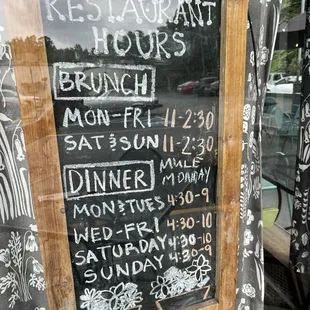 RESTAURANT
HOURS
BRUNCH
MON-FRI 11-2:30
SAT & SUN 11-2:30
DINNER MULE MONDAY
MON & TUES 4:30-9
WED-FRI 4:30-10
SATURDAY 4:30-10
SUNDAY 4:30-9